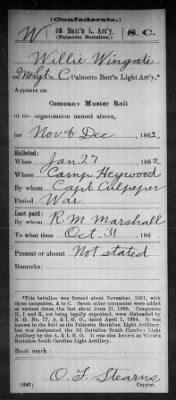 (Confederate.)
W 3 Batt'n L. Art'y. S. C.
(Palmetto Battalion.)
Willie Wingate
Co. C, Palmetto Batt'n Light Art'y.*
Appears on
Company Muster Roll
of the organization named above,
for Nov & Dec, 1862.
Enlisted:
When Jan 27, 1862
Where Camp Heywood
By whom Capt Culpeper
Period War
Last paid:
By whom R. M. Marshall
To what time Oct. 31, 186
Present or absent Not stated
Remarks:
*This battalion was formed about November, 1861, with
three companies, A to C. Seven other companies were added
at various times, the last dated June 21, 1862. Companies
H, I and K, not being legally organized, were disbanded by
S. O. No. 77, A. & I. G. O., dated April 1, 1864. It was
known in the field as the Palmetto Battalion Light Artillery,
but was designated the 3d Battalion South Carolina Light
Artillery by the A. & I. G. O. It was also known as White's
Battalion South Carolina Light Artillery.
Book mark:
O. F. Stearns
(642) Copyist.